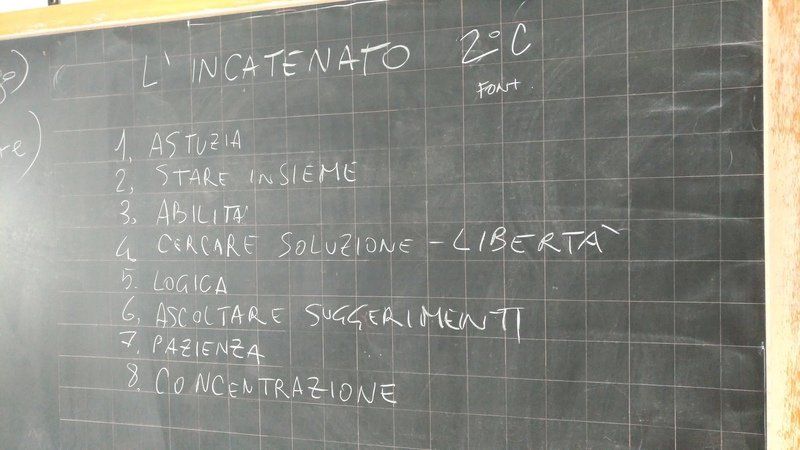 L' INCATENATO 2°C
FONT.
1. ASTUZIA
2. STARE INSIEME
3. ABILITA'
4. CERCARE SOLUZIONE - LIBERTÀ
5. LOGICA
6. ASCOLTARE SUGGERIMENTI
7. PAZIENZA
8. CONCENTRAZIONE